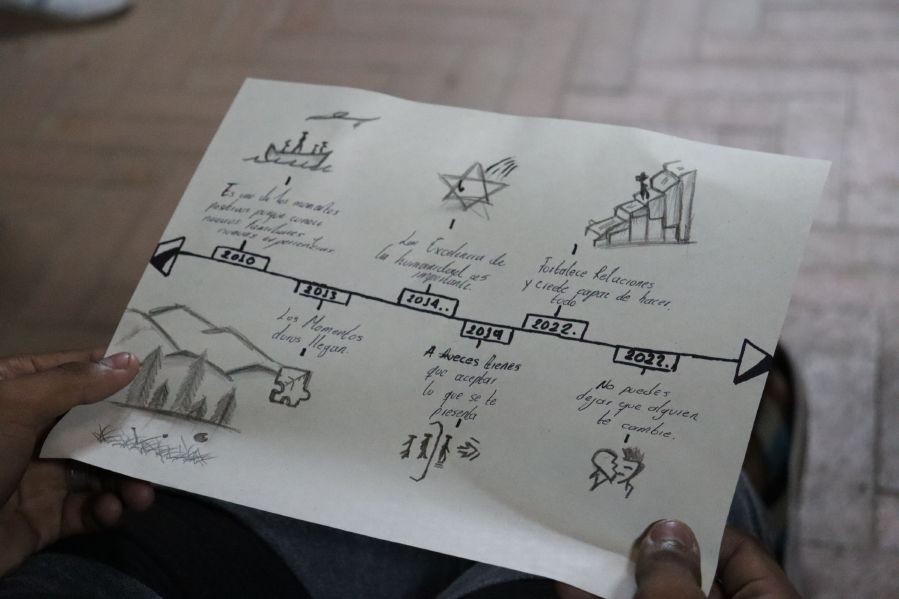 Es uno de los momentos
positivos porque conocí
nuevos familiares y
nuevas experiencias.
2010
2013
Los Momentos
duros llegan.
La Excelencia de
la humanidad es
importante.
2014..
2019
A Aveces tienes
que aceptar
lo que se te
presenta
Fortalece Relaciones
y crede capaz de hacer
todo
2022.
2022.
No puedes
dejar que alguien
te cambie.